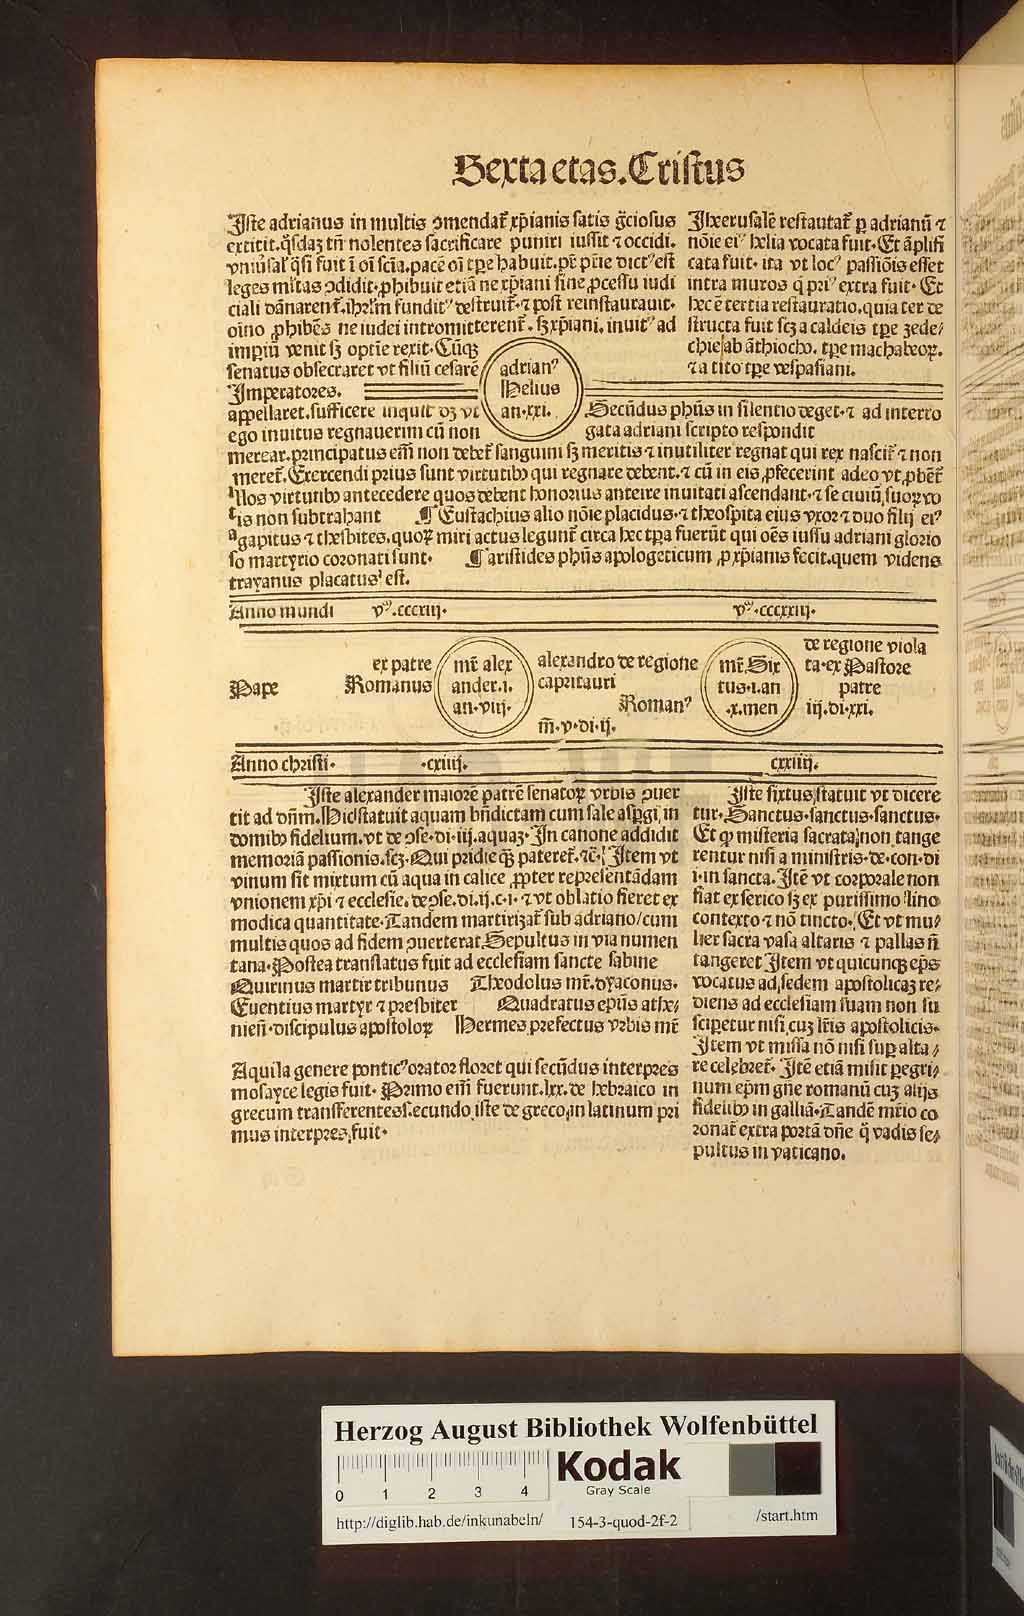 Sexta etas. Cristus
Iste adrianus in multis ꝯmendat᷑ xp̄ianis satis gͣciosus
extitit. qͦsdaʒ tn̄ nolentes sacrificare puniri iussit ⁊ occidi.
vniuͥsal' qͣsi fuit ī oī scīa. pacē oī tꝑe habuit. pr̄ prīe dictꝰ est
leges ml'tas ꝯdidit. ꝓhibuit etiā ne xp̄iani sine ꝓcessu iudi
ciali dānarent᷑. ihrl'm funditꝰ destruit᷑. ⁊ post reinstaurauit.
oīno ꝓhibēs ne iudei intromitterent᷑. sꝫ xp̄iani. inuitꝰ ad
imꝑiū venit sꝫ optīe rexit. Cūqꝫ
senatus obsecraret vt filiū cesarē
Imperatores.
appellaret. sufficere inquit dꝫ vt
ego inuitus regnauerim cū non
adrianꝰ
Helius
an. xxi.
Iherusalē restautat᷑ ꝑ adrianū ⁊
nōie eiꝰ helia vocata fuit. Et āplifi
cata fuit. ita vt locꝰ passiōis esset
intra muros q̄ priꝰ extra fuit. Et
hec ē tertia restauratio. quia ter de
structa fuit scꝫ a caldeis tꝑe zede/
chie ab āthiocho. tꝑe machabeoꝝ.
⁊ a tito tꝑe vespasiani.
Secūdus phūs in silentio deget. ⁊ ad interro
gata adriani scripto respondit
merear. principatus em̄ non debet᷑ sanguini sꝫ meritis ⁊ inutiliter regnat qui rex nascit᷑ ⁊ non
meret᷑. Exercendi prius sunt virtutibꝰ qui regnare debent. ⁊ cū in eis ꝓfecerint adeo vt ꝓbēt᷑
Illos virtutibꝰ antecedere quos debent honorius anteire inuitati ascendant. ⁊ se ciuiū suoꝝ vo
tis non subtrahant ¶ Eustachius alio nōie placidus. ⁊ theospita eius vxor ⁊ duo filij eiꝰ
agapitus ⁊ thesbites. quoꝝ miri actus legunt᷑ circa hec tꝑa fuerūt qui oēs iussu adriani glorio
so martyrio coronati sunt. ¶ aristides phūs apologeticum ꝓ xp̄ianis fecit. quem videns
trayanus placatus est.
Anno mundi vͫ. cccxiij. vͫ. cccxxiij.
Pape
ex patre
Romanus
mr̄ alex
ander. i.
an. viij.
alexandro de regione
capritauri
Romanꝰ
m̄. v. di. ij.
mr̄. Six
tus. i. an
. x. men
de regione viola
ta. ex Pastore
patre
iij. di. xxi.
Anno christi. . cxiiij. cxxiiij.
Iste alexander maiorē patrē senatoꝝ vrbis ꝯuer
tit ad dn̄m. Hic statuit aquam bn̄dictam cum sale asꝑgi in
domibꝰ fidelium. vt de ꝯse. di. iij. aquaꝫ. In canone addidit
memoriā passionis. scꝫ. Qui pridie qͣꝫ pateret᷑. ⁊c̄. Item vt
vinum sit mixtum cū aqua in calice ꝓpter representādam
vnionem xp̄i ⁊ ecclesie. de ꝯse. di. ij. c. i. ⁊ vt oblatio fieret ex
modica quantitate. Tandem martirizat᷑ sub adriano/cum
multis quos ad fidem ꝯuerterat. Sepultus in via numen
tana. Postea translatus fuit ad ecclesiam sancte sabine
Quirinus martir tribunus Theodolus mr̄. dyaconus.
Euentius martyr ⁊ presbiter Quadratus ep̄us athe/
niēn̄. discipulus apostoloꝝ Hermes prefectus vrbis mr̄
Aquila genere ponticꝰ orator floret qui secūdus interpres
mosayce legis fuit. Primo em̄ fuerunt. lxx. de hebraico in
grecum transferentes. secundo iste de greco in latinum pri
mus interpres fuit.
Iste sixtus statuit vt dicere
tur. Sanctus. sanctus. sanctus.
Et ꝙ misteria sacrata non tange
rentur nisi a ministris. de. con. di
. i. in sancta. Itē vt corporale non
fiat ex serico sꝫ ex purissimo lino
contexto ⁊ nō tincto. Et vt mu/
lier sacra vasa altaris ⁊ pallas n̄
tangeret Item vt quicunqꝫ ep̄s
vocatus ad sedem apostolicaꝫ re/
diens ad ecclesiam suam non su
sciꝑetur nisi cuꝫ lr̄is apostolicis.
Item vt missa nō nisi suꝑ alta/
re celebret᷑. Itē etiā misit ꝑegri/
num ep̄m gn̄e romanū cuꝫ alijs
fidelibꝰ in galliā. Tandē mr̄io co
ronat᷑ extra portā dn̄e q̄ vadis se/
pultus in vaticano.
Herzog August Bibliothek Wolfenbüttel
0 1 2 3 4
Kodak
Gray Scale
http://diglib.hab.de/inkunabeln/ 154-3-quod-2f-2 /start.htm